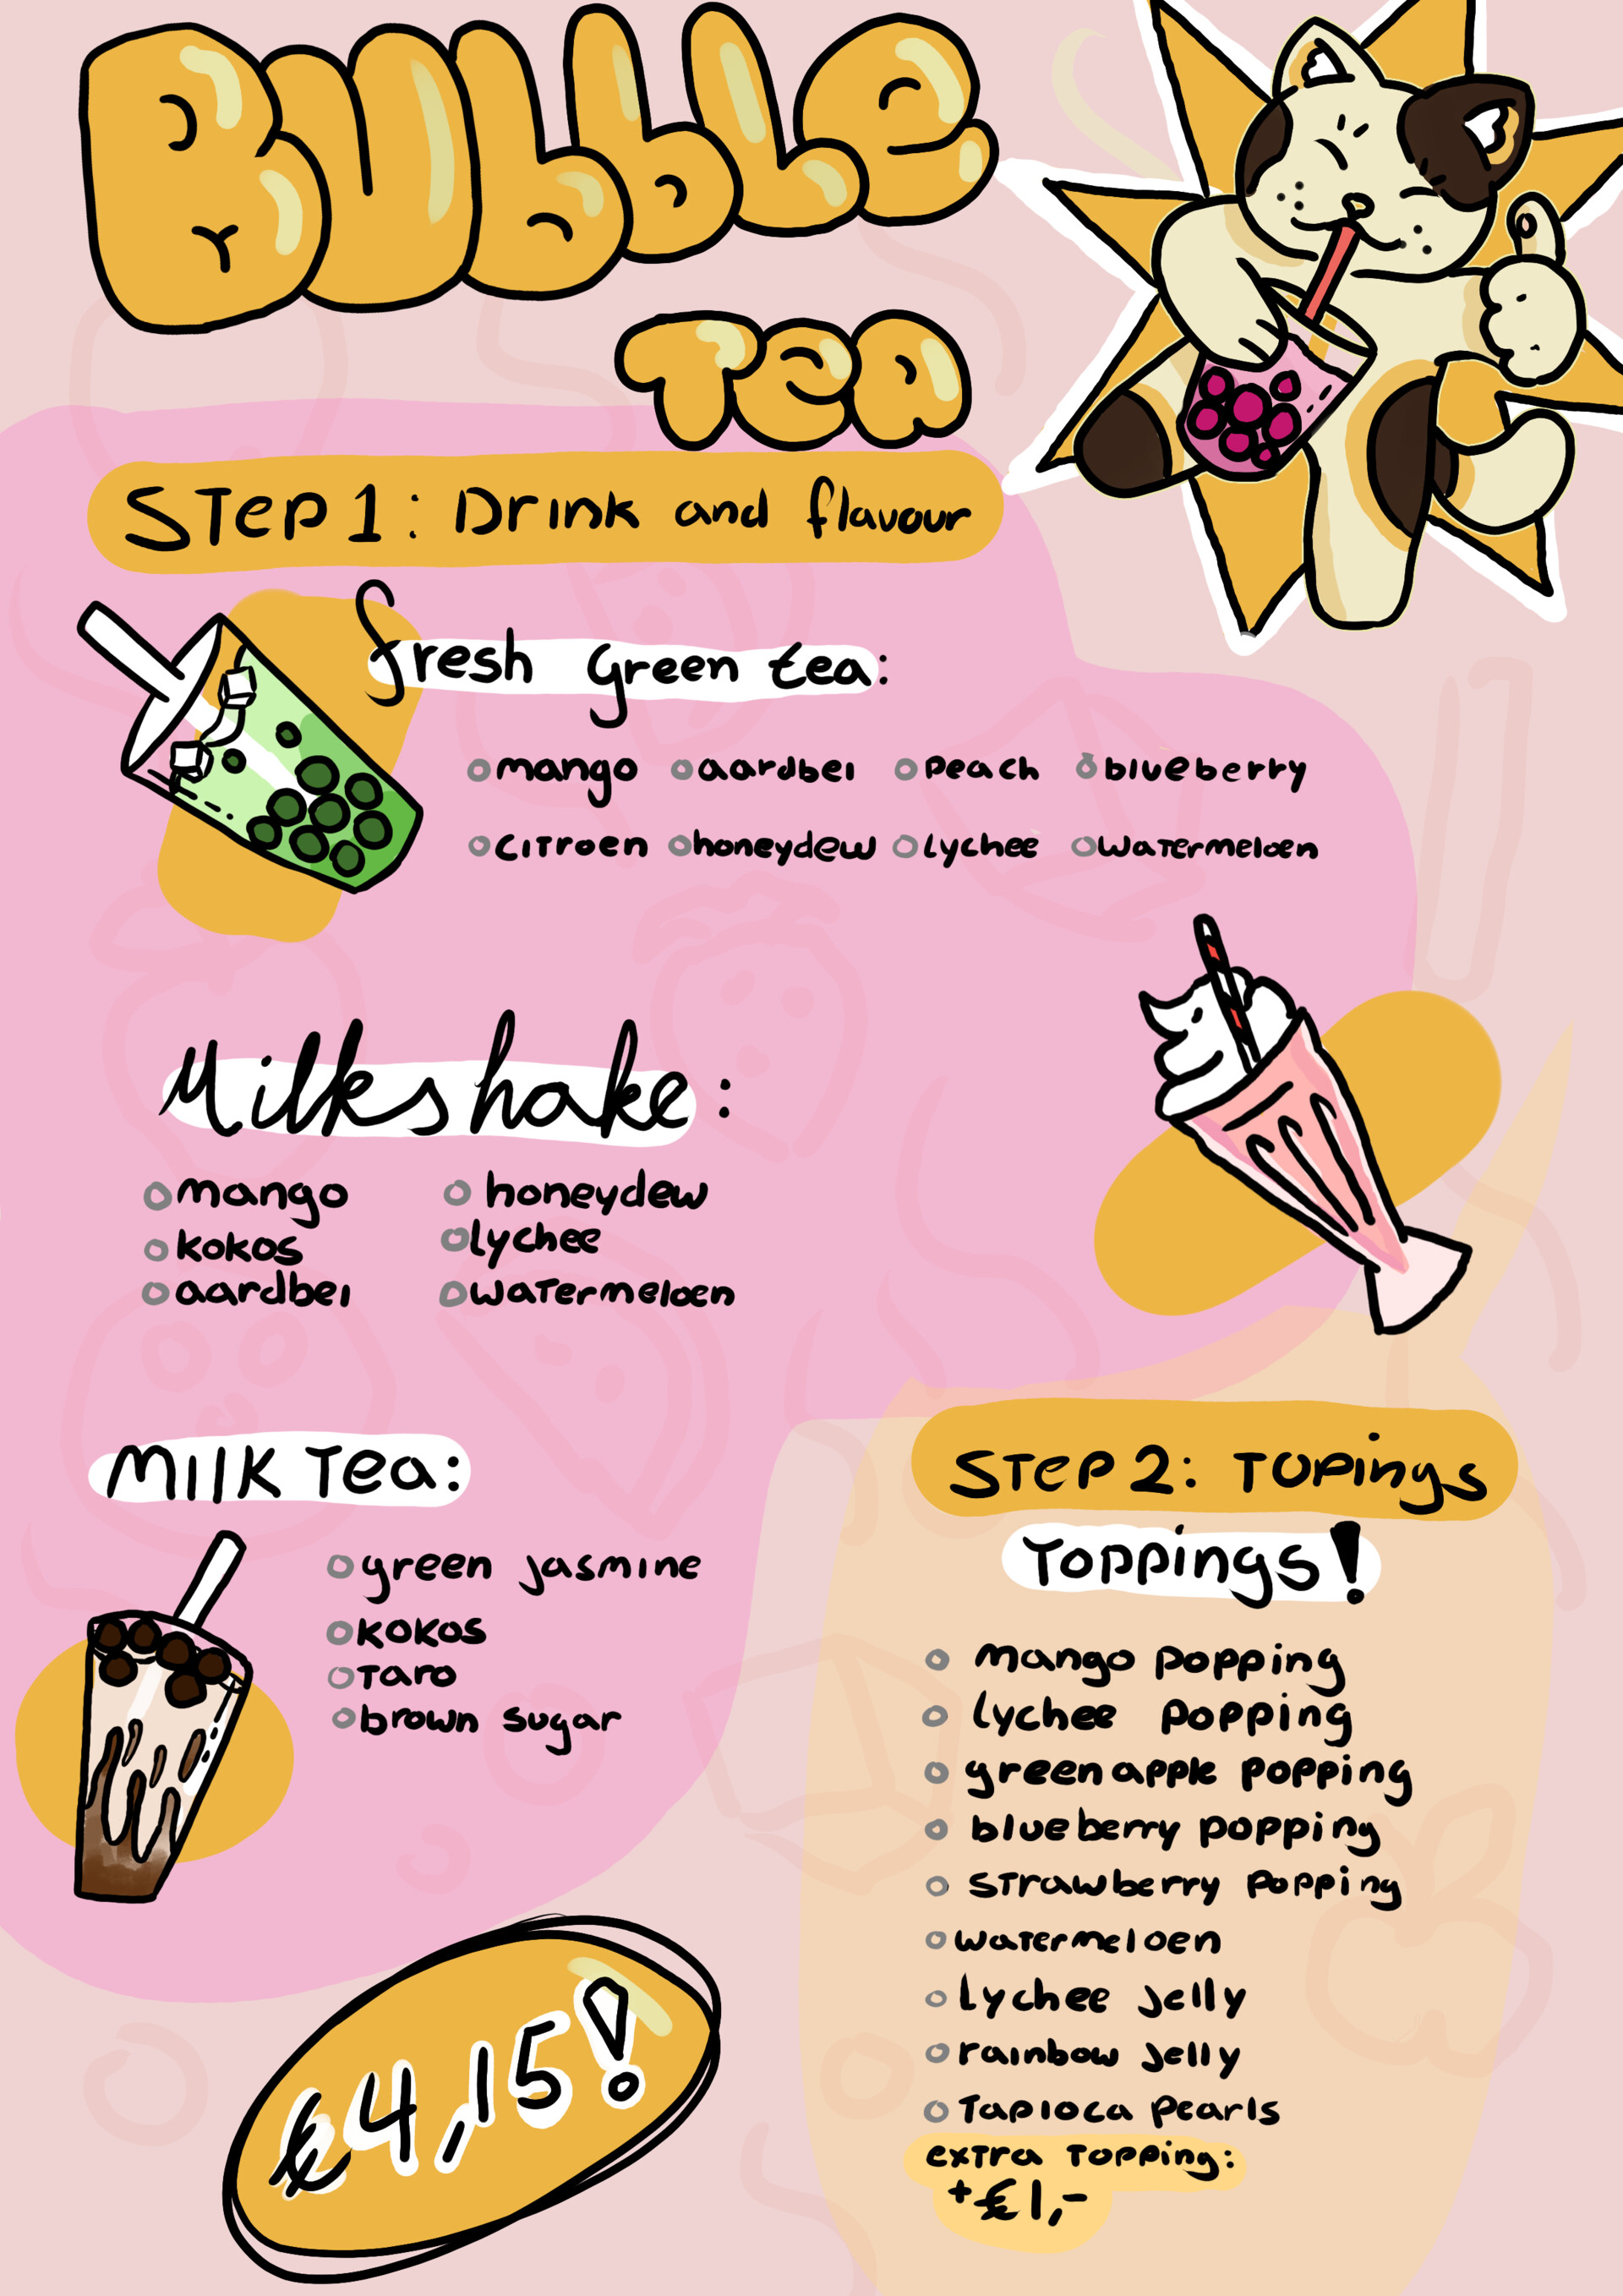 Bubble
Tea
Step 1: Drink and flavour
fresh green tea:
mango aardbei peach blueberry
citroen honeydew lychee watermeloen
Milkshake:
mango honeydew
kokos lychee
aardbei watermeloen
Milk Tea:
green jasmine
kokos
Taro
brown sugar
Step 2: Topings
Toppings!
mango popping
lychee popping
green apple popping
blueberry popping
strawberry popping
watermeloen
Lychee Jelly
rainbow Jelly
Tapioca pearls
extra Topping:
+€1,-
€4,15!